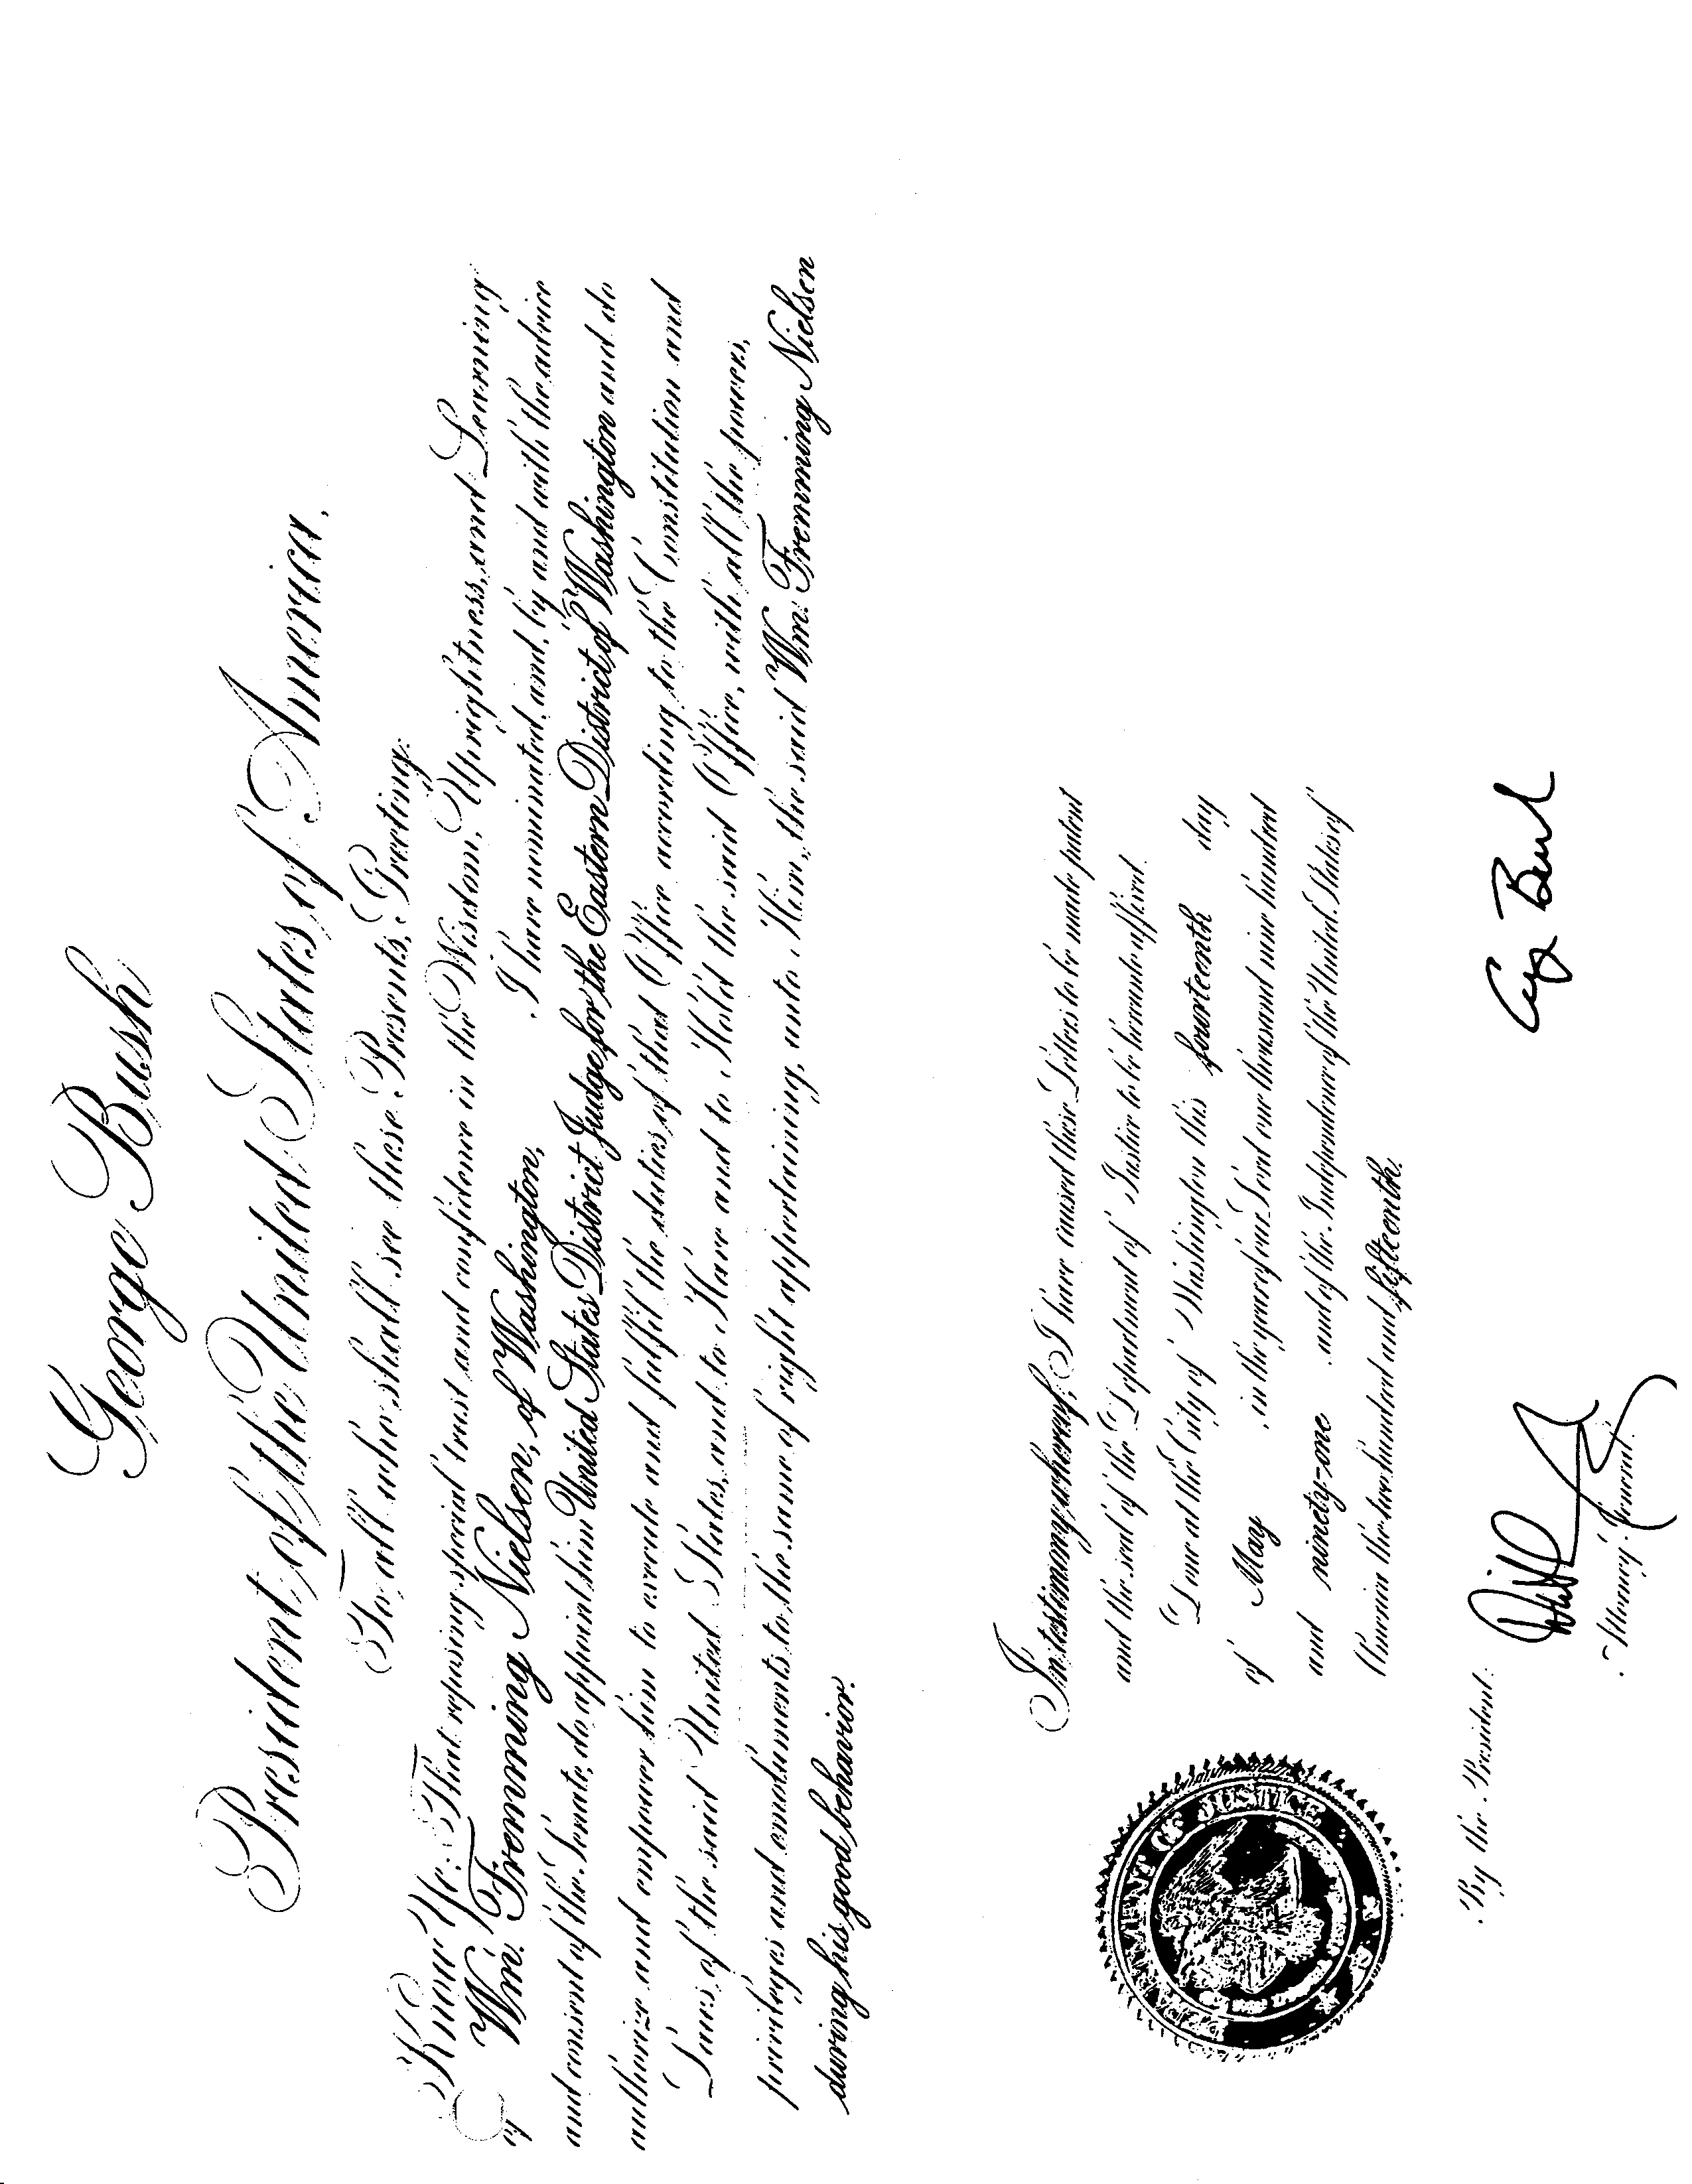 George Bush
President of the United States of America,
To all who shall see these Presents, Greeting:
Know Ye: That reposing special trust and confidence in the Wisdom, Uprightness, and Learning
of Wm. Fremming Nielsen, of Washington, I have nominated, and, by and with the advice
and consent of the Senate, do appoint him United States District Judge for the Eastern District of Washington and do
authorize and empower him to execute and fulfil the duties of that Office according to the Constitution and
Laws of the said United States, and to Have and to Hold the said Office, with all the powers,
privileges and emoluments to the same of right appertaining, unto Him, the said Wm. Fremming Nielsen
during his good behavior.
In testimony whereof, I have caused these Letters to be made patent
and the seal of the Department of Justice to be hereunto affixed.
Done at the City of Washington this fourteenth day
of May, in the year of our Lord one thousand nine hundred
and ninety-one and of the Independence of the United States of
America the two hundred and fifteenth.
DEPARTMENT OF JUSTICE
George Bush
By the President:
Attorney General.